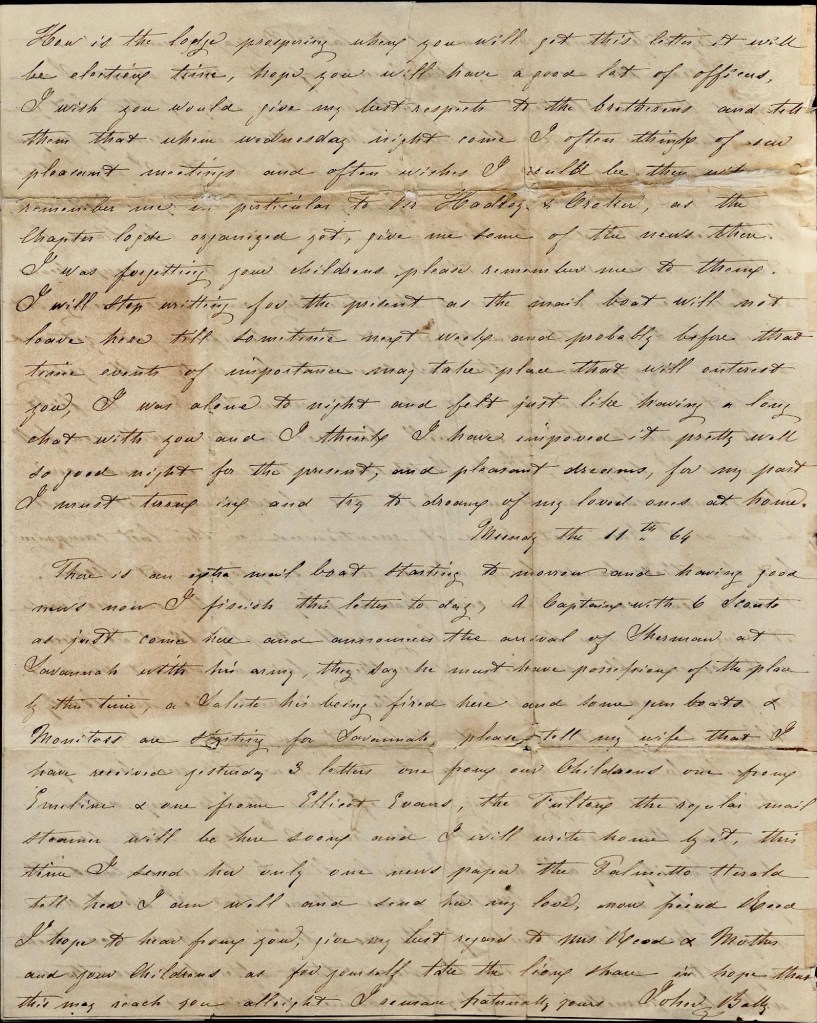 How is the lodge prospering wheng you will get this letter it will
be electiong time, hope you will have a good lot of officers,
I wish you would give my best respects to the bretherens and tell
them that when wednesday night come I often think of our
pleasant meetings and often wishes I could be then with
remember me in perticular to Br Hadley & Croker, as the
Chapter logde organized yet, give me some of the news then.
I was forgetting your childrens please remember me to them.
I will Stop writting for the present as the mail boat will not
leave here till sometime next week and probably before that
time events of importance may take place that will enterest
you, I was alone to night and felt just like having a long
chat with you and I think I have impoved it pretty well
so good night for the present, and pleasant dreams, for my part
I must turn in and try to dream of my loved ones at home.
Munday the 11th 64
There is an extra mail boat starting to morrow and having good
news now I finish this letter to day, A Captaing with 6 Scouts
as just come here and announces the arrival of Sherman at
Savannah with his army, they say he must have possesiong of the place
by this time, a Salute his being fired here and some gun boats &
Monitors are starting for Savannah, please tell my wife that I
have received yesturday 3 letters one from our Childrens one from
Emeline & one frome Elliot Evans, the Fulton the regular mail
steamer will be here soong and I will write home by it, this
time I send her only one news paper the Palmetto Herald
tell her I am well and send her my love, now friend Reed
I hope to hear from you, give my best regard to mrs Reed & Mother
and your Childrens as for yourself take the liong share in hope that
this may reach you allright I remain fraternally yours John Batty